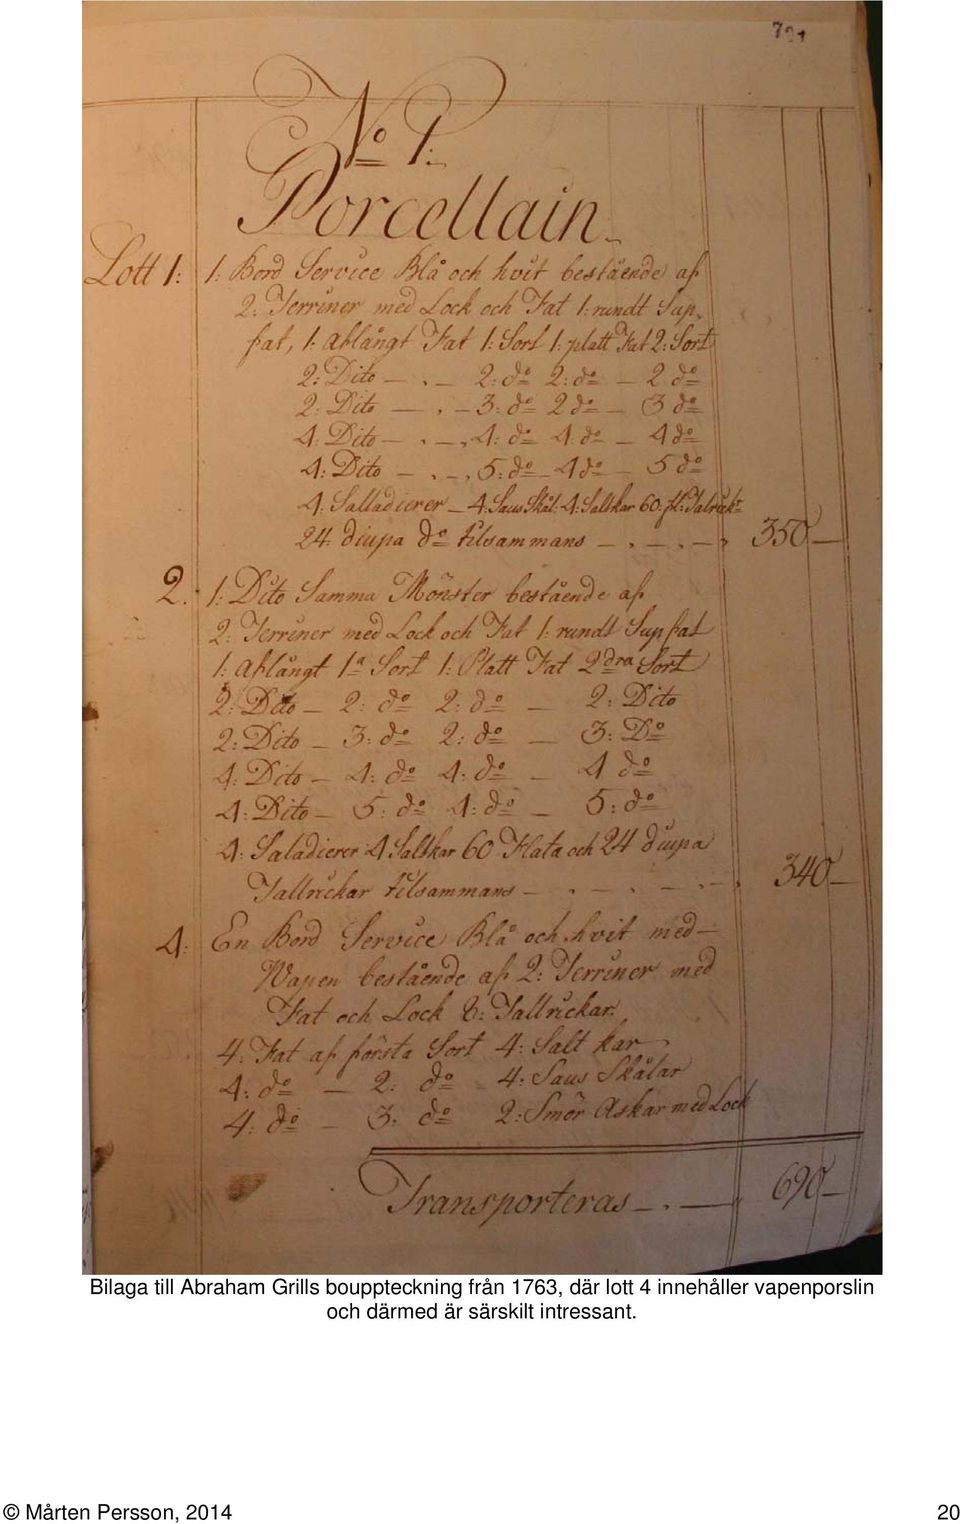 721
No 1:
Porcellain
Lott 1: 1: Bord Service Blå och hvit bestäende af
2: Terriner med Lock och Fat 1: rundt Sup
fat, 1: aflångt Fat 1: Sort 1: platt Fat 2: Sort
2: Dito — , — 2: do 2: do — 2 do
2: Dito — , — 3: do 2 do — 3 do
4: Dito — , — , 4: do 4 do — 4 do
4: Dito — , — , 5: do — 4 do — 5 do
4: Salladierer — 4: Saus Skål: 4: Saltkar 60: fl: Talrick:
24 diupa do tilsammans — , — , — , 350 —
2. 1: Dito Samma Mönster bestående af
2: Terriner med Lock och Fat 1: rundt Sup fat
1: aflångt 1a Sort 1: Platt Fat 2dra Sort
2: Dito — 2: do 2: do — 2: Dito
2: Dito — 3: do 2: do — 3: Do
4: Dito — 4: do 4: do — 4 do
4: Dito — 5: do 4: do — 5: do
4: Saladierer 4 Saltkar 60 Flata och 24 diupa
Tallrickar tilsammans — , — , — , — , 340 —
4: En Bord Service Blå och hvit med
Wapen bestående af 2: Terriner med
Fat och Lock 8: Tallrickar.
4: Fat af första Sort 4: Salt kar
4: do — 2: do 4: Saus Skålar
4: do — 3: do 2: Smör Askar med Lock
Transporteras — , — , 690 —
Bilaga till Abraham Grills bouppteckning från 1763, där lott 4 innehåller vapenporslin
och därmed är särskilt intressant.
© Mårten Persson, 2014 20